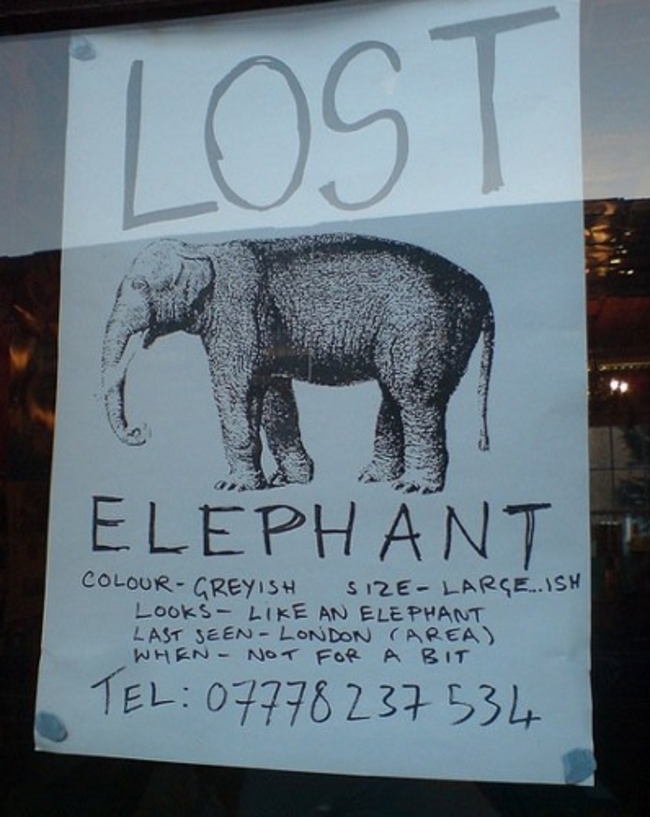 LOST
ELEPHANT
COLOUR - GREYISH SIZE - LARGE...ISH
LOOKS - LIKE AN ELEPHANT
LAST SEEN - LONDON (AREA)
WHEN - NOT FOR A BIT
TEL: 07778 237 534